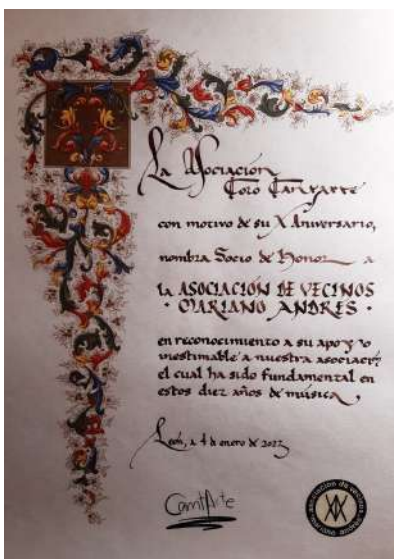 La Asociación
Coro Cantarte
con motivo de su X Aniversario,
nombra Socio de Honor a
la ASOCIACIÓN DE VECINOS
· MARIANO ANDRES ·
en reconocimiento a su apoyo
inestimable a nuestra asociación
el cual ha sido fundamental en
estos diez años de música,
León, a 4 de enero de 2023
CantArte
asociación de vecinos
mariano andrés